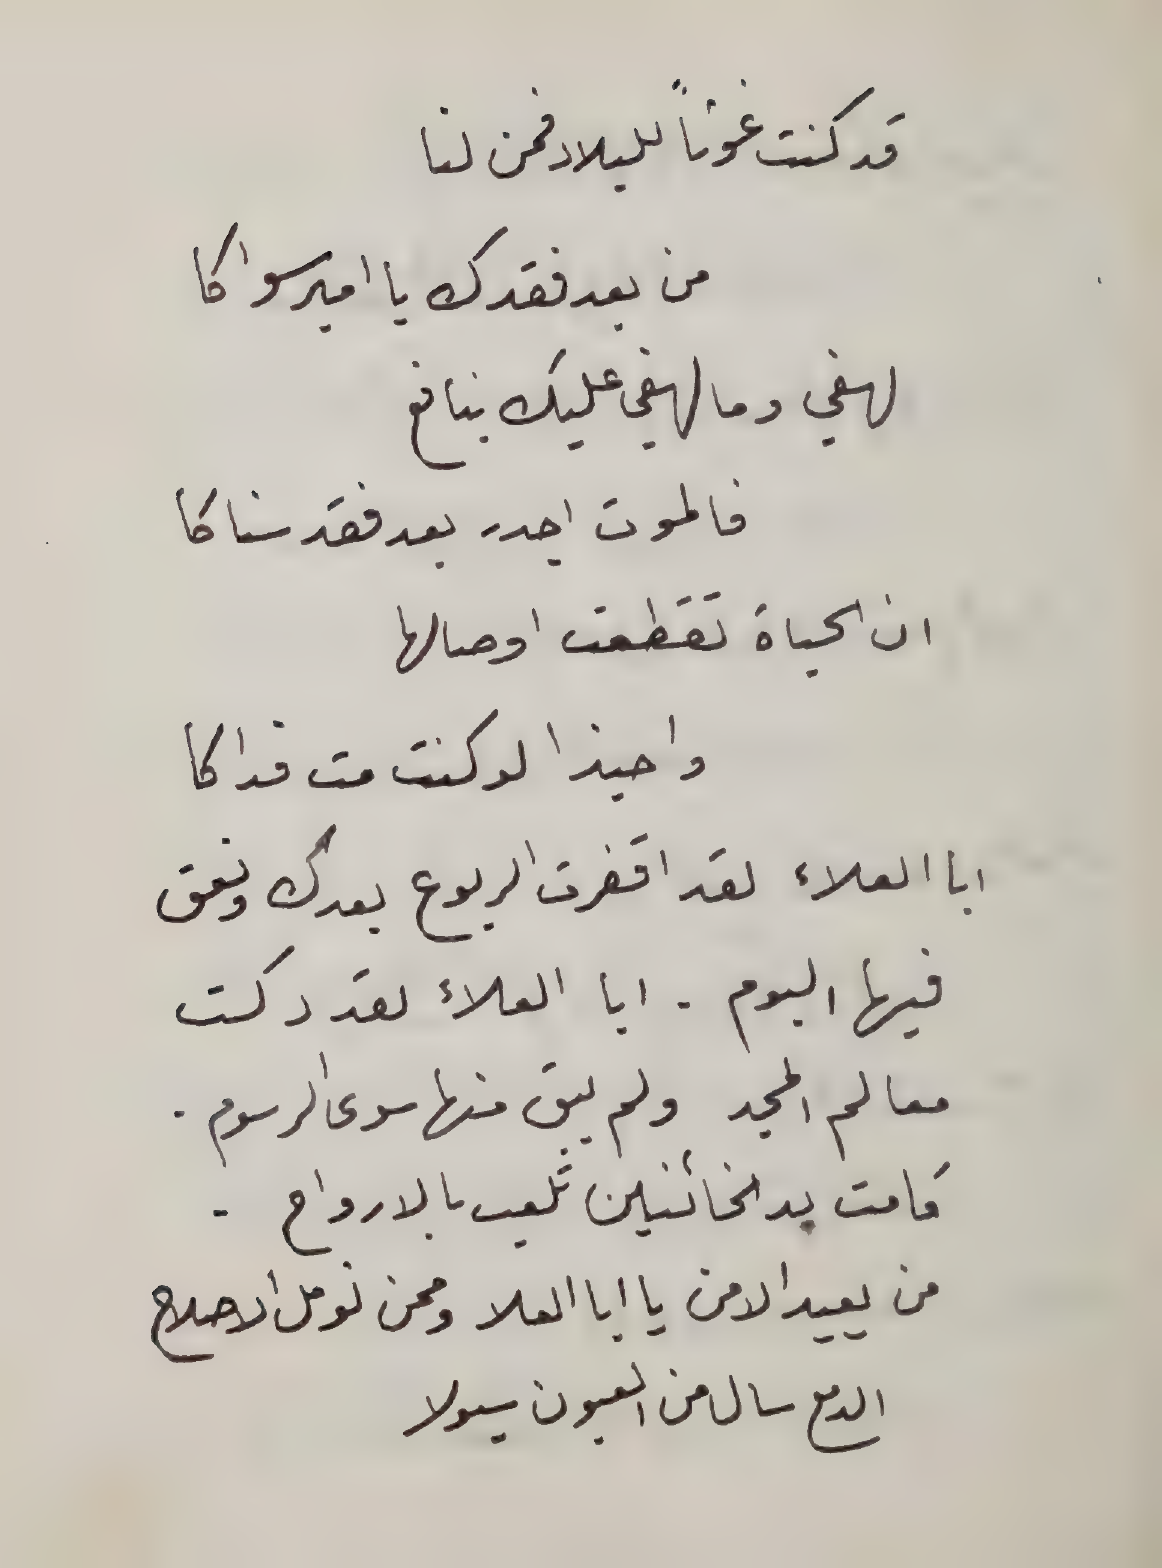 قد كنت غوثاً للبلاد فمن لنا
من بعد فقدك يا امير سواكا
لهفي وما لهفي عليك بنافع
فالموت اجدر بعد فقد سناكا
ان الحياة تقطعت اوصالها
واحبذا لو كنت مت فداكا
ابا العلاء لقد اقفرت الربوع بعدك ونعق
فيها البوم . ابا العلاء لقد دكت
معالم المجد ولم يبق منها سوى الرسوم .
قامت يد الخائنين تلعب بالارواح .
من يعيد الامن يا ابا العلا وممن نومل الاصلاح
الدمع سال من العيون سيولا